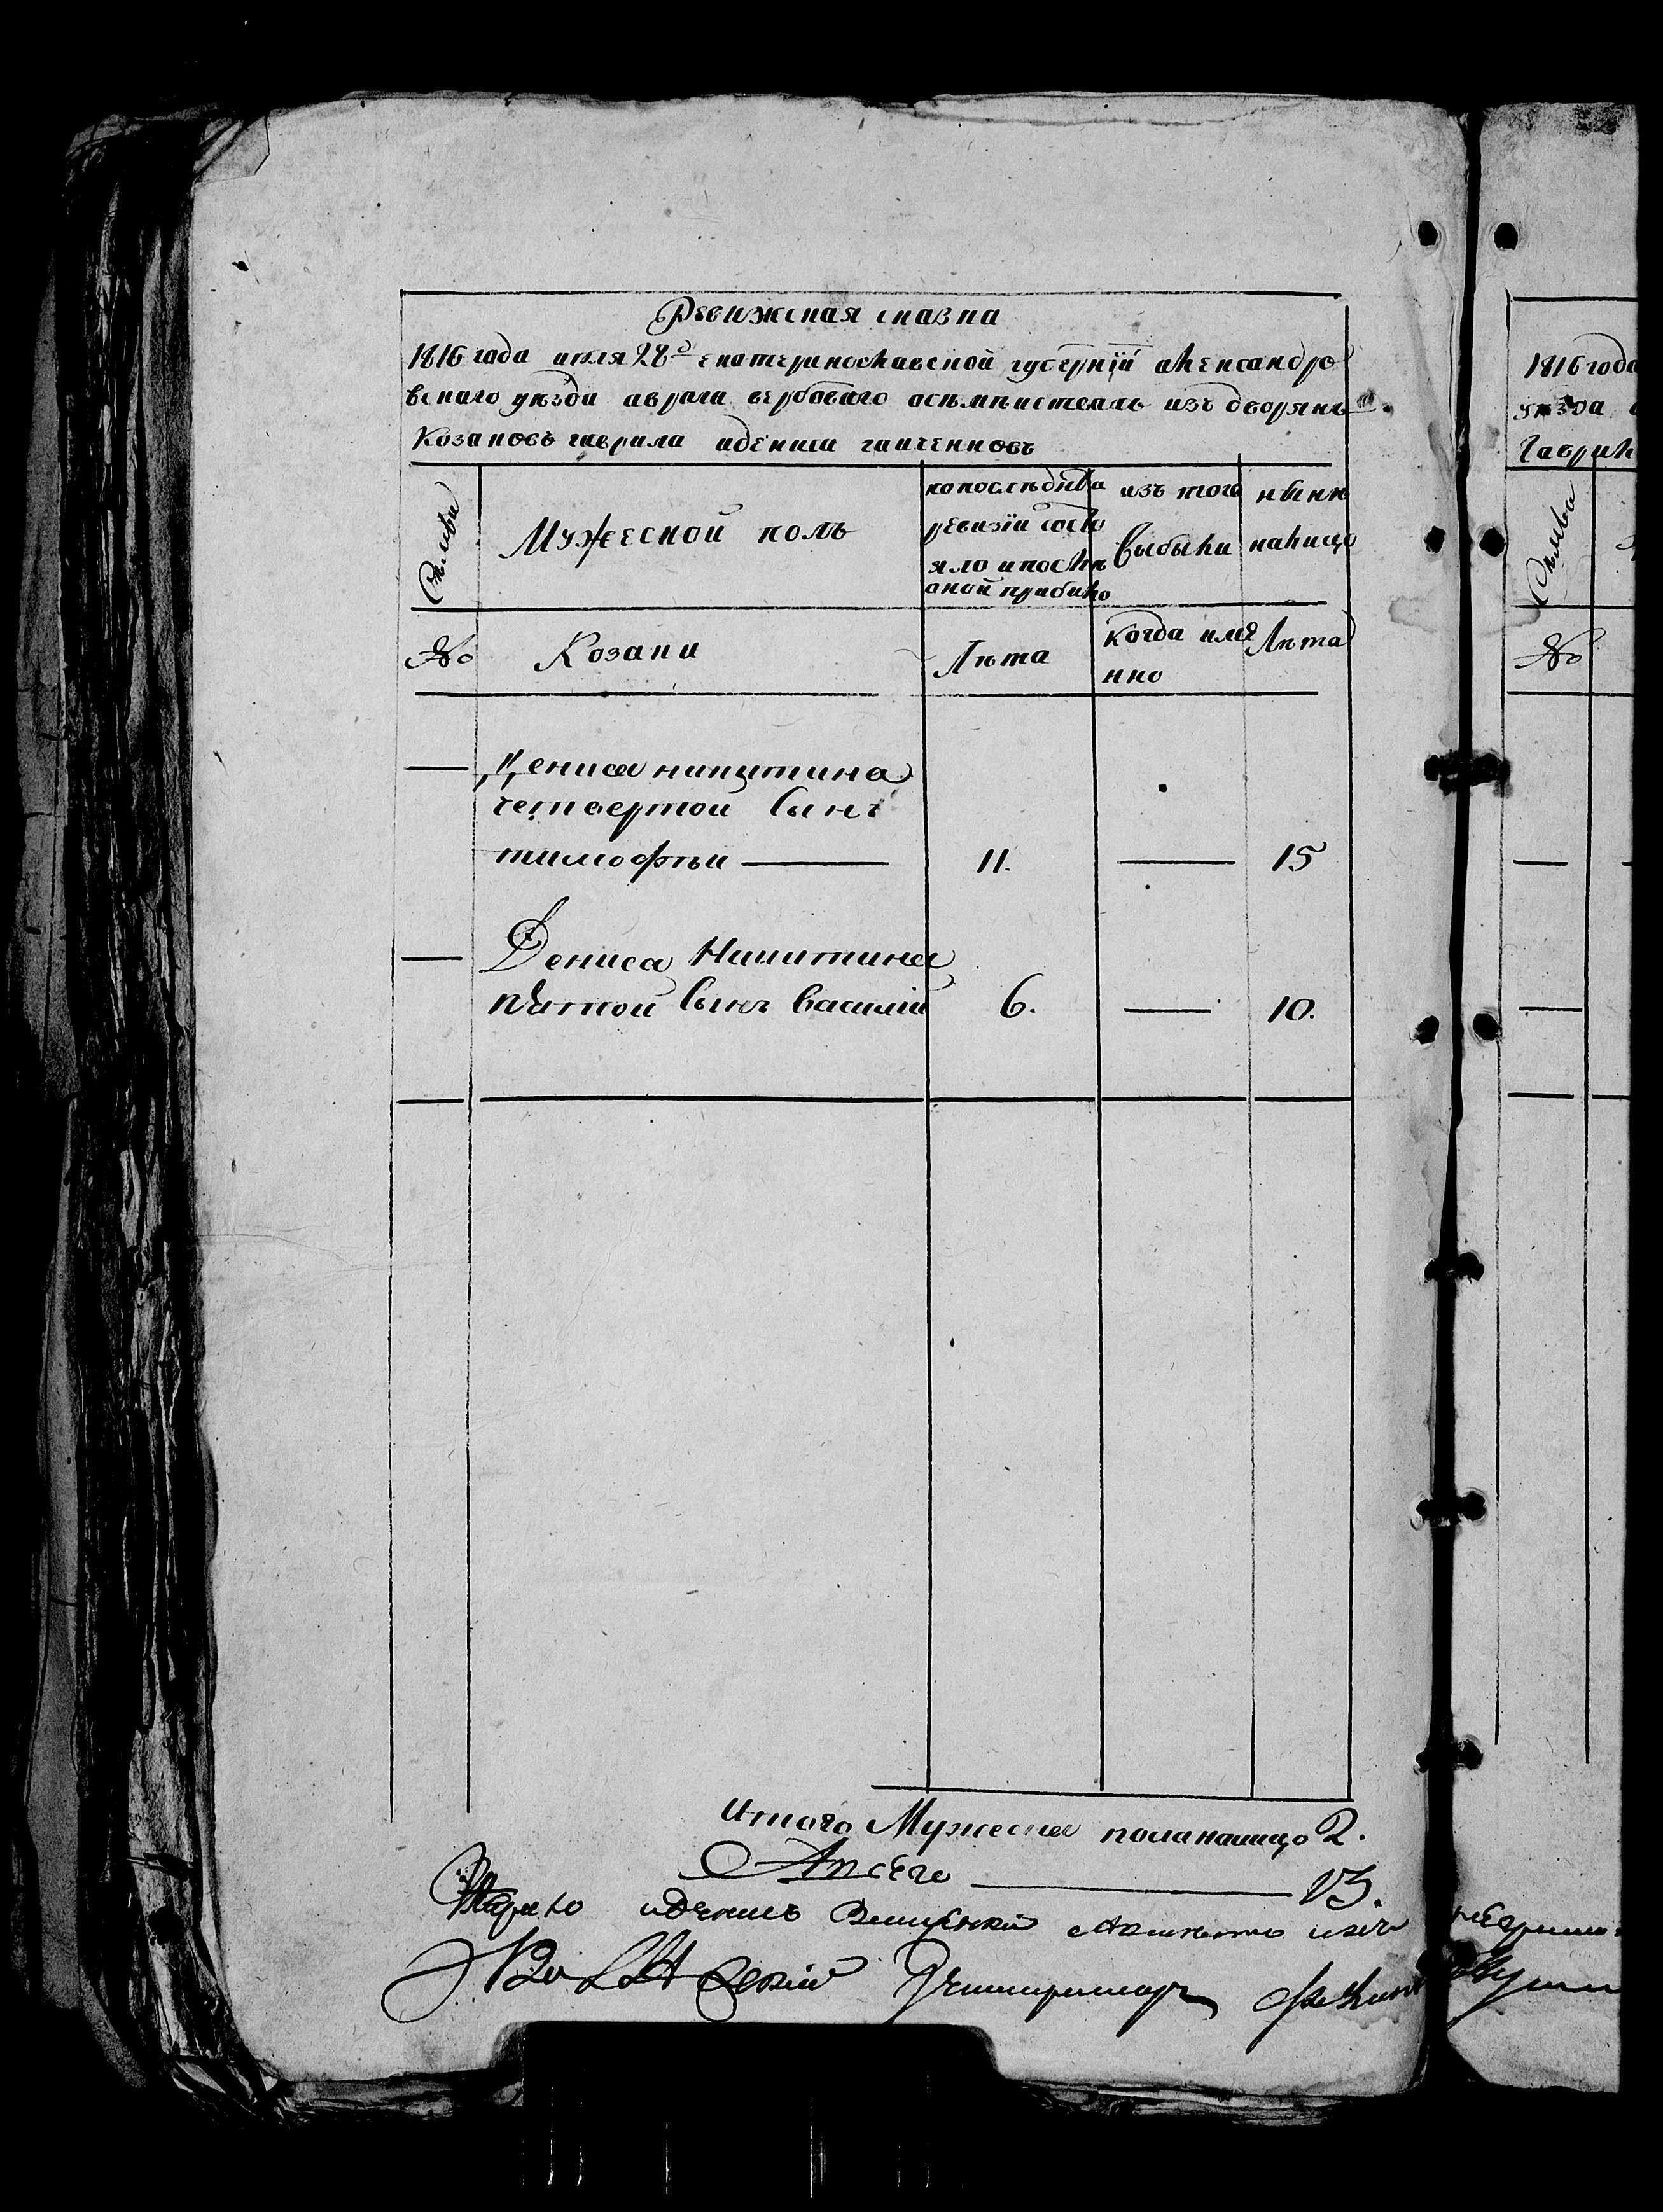 Ревижская сказка
1816 года июля 28 екатеринославской губернїи александро
вскаго уѣзда врага вербоваго изъ дворянъ
Козаковъ гаврила идениса
Семьи
Мужеской полъ
попоследнѣй
ревизїи состо
яло и послѣ
оной прибыло
изъ того
выбыли
нынѣ
налицо
№
Козаки
Лѣта
когда име
нно
Лѣта
Дениса никитина
четвертой сынъ
тимофѣи 11. 15
Дениса Никитина
пятой сынъ василїй 6. 10.
Итого Мужеска пола налицо 2.
Авсего 13.
иденисъ
1816 года
уѣзда
Гаврил
Семьи
№